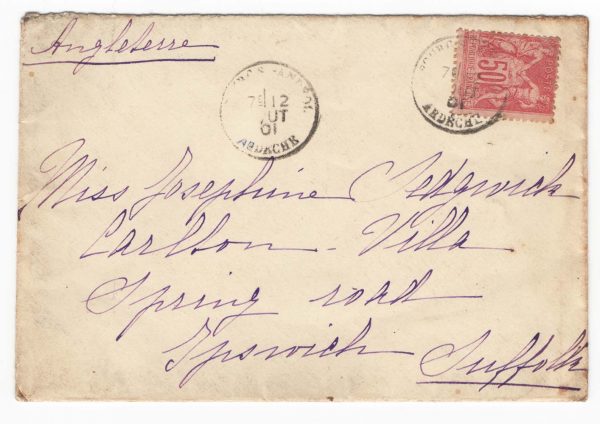 Angleterre
7E 12
UT
01
ARDECHE
50c
7E
01
ARDECHE
Miss Josephine Sedgwick
Carlton - Villa
Spring road
Ipswich Suffolk